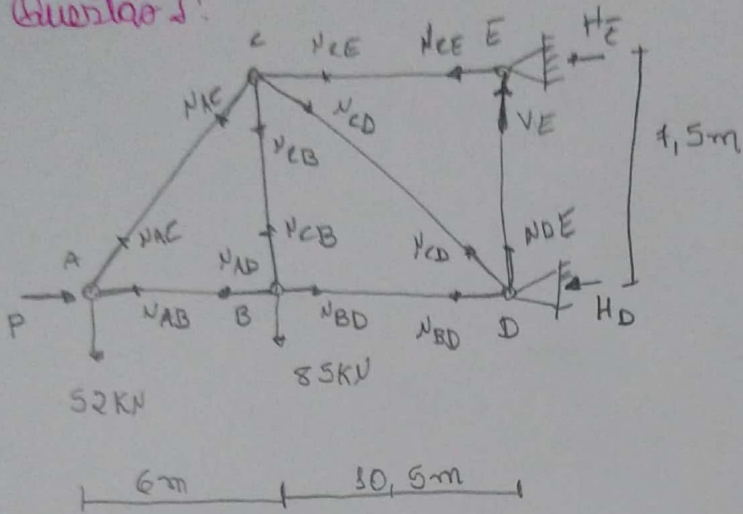 Questão 1:
C NCE NCE E HE
NAC NCD VE
NCB 7,5m
NAC NCB NCD NDE
A NAD
P NAB B NBD NBD D HD
52KN 85KN
6m 10,5m